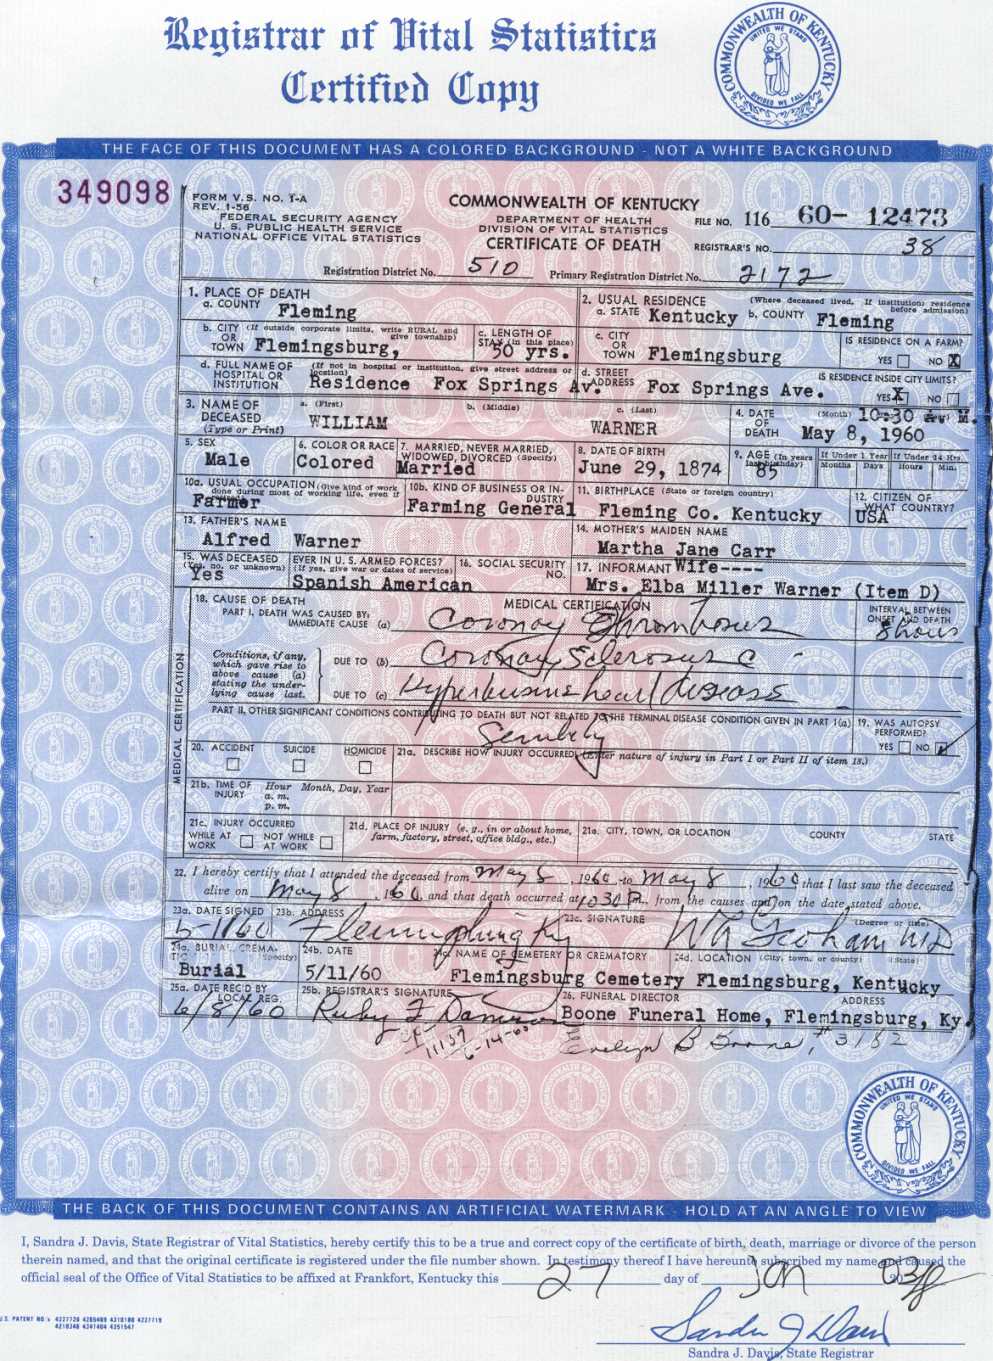 Registrar of Vital Statistics
Certified Copy
COMMONWEALTH OF KENTUCKY
UNITED WE STAND
DIVIDED WE FALL
THE FACE OF THIS DOCUMENT HAS A COLORED BACKGROUND - NOT A WHITE BACKGROUND
349098
FORM V.S. NO. 1-A
REV. 1-56
FEDERAL SECURITY AGENCY
U. S. PUBLIC HEALTH SERVICE
NATIONAL OFFICE VITAL STATISTICS
COMMONWEALTH OF KENTUCKY
DEPARTMENT OF HEALTH
DIVISION OF VITAL STATISTICS
CERTIFICATE OF DEATH
FILE NO. 116 60- 12473
REGISTRAR'S NO. 38
Registration District No. 510 Primary Registration District No. 2172
1. PLACE OF DEATH
a. COUNTY Fleming
2. USUAL RESIDENCE (Where deceased lived. If institution: residence before admission)
a. STATE Kentucky b. COUNTY Fleming
b. CITY (If outside corporate limits, write RURAL and give township)
OR
TOWN Flemingsburg,
c. LENGTH OF STAY (in this place)
50 yrs.
c. CITY
OR
TOWN Flemingsburg
IS RESIDENCE ON A FARM?
YES NO X
d. FULL NAME OF (If not in hospital or institution, give street address or location)
HOSPITAL OR
INSTITUTION Residence Fox Springs Av.
d. STREET
ADDRESS Fox Springs Ave.
IS RESIDENCE INSIDE CITY LIMITS?
YES X NO
3. NAME OF DECEASED (Type or Print)
a. (First) WILLIAM
b. (Middle)
c. (Last) WARNER
4. DATE OF DEATH (Month) 10:30 M.
May 8, 1960
5. SEX
Male
6. COLOR OR RACE
Colored
7. MARRIED, NEVER MARRIED, WIDOWED, DIVORCED (Specify)
Married
8. DATE OF BIRTH
June 29, 1874
9. AGE (In years last birthday)
85
If Under 1 Year
Months Days
If Under 24 Hrs.
Hours Min.
10a. USUAL OCCUPATION (Give kind of work done during most of working life, even if
Farmer
10b. KIND OF BUSINESS OR INDUSTRY
Farming General
11. BIRTHPLACE (State or foreign country)
Fleming Co. Kentucky
12. CITIZEN OF WHAT COUNTRY?
USA
13. FATHER'S NAME
Alfred Warner
14. MOTHER'S MAIDEN NAME
Martha Jane Carr
15. WAS DECEASED EVER IN U. S. ARMED FORCES?
(Yes, no, or unknown) (If yes, give war or dates of service)
Yes Spanish American
16. SOCIAL SECURITY NO.
17. INFORMANT Wife----
Mrs. Elba Miller Warner (Item D)
MEDICAL CERTIFICATION
18. CAUSE OF DEATH
MEDICAL CERTIFICATION
INTERVAL BETWEEN ONSET AND DEATH
PART I. DEATH WAS CAUSED BY:
IMMEDIATE CAUSE (a) Coronay Thrombosus
8 hours
Conditions, if any, which gave rise to above cause (a) stating the underlying cause last.
DUE TO (b) Coronay Sclerosus c
DUE TO (c) Hypertensive heart disease
PART II, OTHER SIGNIFICANT CONDITIONS CONTRIBUTING TO DEATH BUT NOT RELATED TO THE TERMINAL DISEASE CONDITION GIVEN IN PART I(a)
Senility
19. WAS AUTOPSY PERFORMED?
YES NO
20. ACCIDENT SUICIDE HOMICIDE
21a. DESCRIBE HOW INJURY OCCURRED. (Enter nature of injury in Part I or Part II of item 18.)
21b. TIME OF INJURY Hour Month, Day, Year
a. m.
p. m.
21c. INJURY OCCURRED
WHILE AT WORK NOT WHILE AT WORK
21d. PLACE OF INJURY (e. g., in or about home, farm, factory, street, office bldg., etc.)
21e. CITY, TOWN, OR LOCATION COUNTY STATE
22. I hereby certify that I attended the deceased from May 8, 1960 to May 8, 1960 that I last saw the deceased
alive on May 8, 1960 and that death occurred at 1030 P m., from the causes and on the date stated above.
23a. DATE SIGNED
23b. ADDRESS
Flemingsburg Ky
23c. SIGNATURE (Degree or title)
W R Graham MD
24a. BURIAL, CREMA- (Specify)
Burial
24b. DATE
5/11/60
24c. NAME OF CEMETERY OR CREMATORY
Flemingsburg Cemetery
24d. LOCATION (City, town, or county) (State)
Flemingsburg, Kentucky
25a. DATE REC'D BY LOCAL REG.
6/8/60
25b. REGISTRAR'S SIGNATURE
Ruby F Damron
26. FUNERAL DIRECTOR ADDRESS
Boone Funeral Home, Flemingsburg, Ky.
Evelyn B Boone, #3182
6-14-60
COMMONWEALTH OF KENTUCKY
UNITED WE STAND
DIVIDED WE FALL
THE BACK OF THIS DOCUMENT CONTAINS AN ARTIFICIAL WATERMARK - HOLD AT AN ANGLE TO VIEW
I, Sandra J. Davis, State Registrar of Vital Statistics, hereby certify this to be a true and correct copy of the certificate of birth, death, marriage or divorce of the person
therein named, and that the original certificate is registered under the file number shown. In testimony thereof I have hereunto subscribed my name and caused the
official seal of the Office of Vital Statistics to be affixed at Frankfort, Kentucky this 27 day of Jan 2003
U.S. PATENT NO.'s
Sandra J Davis
Sandra J. Davis, State Registrar